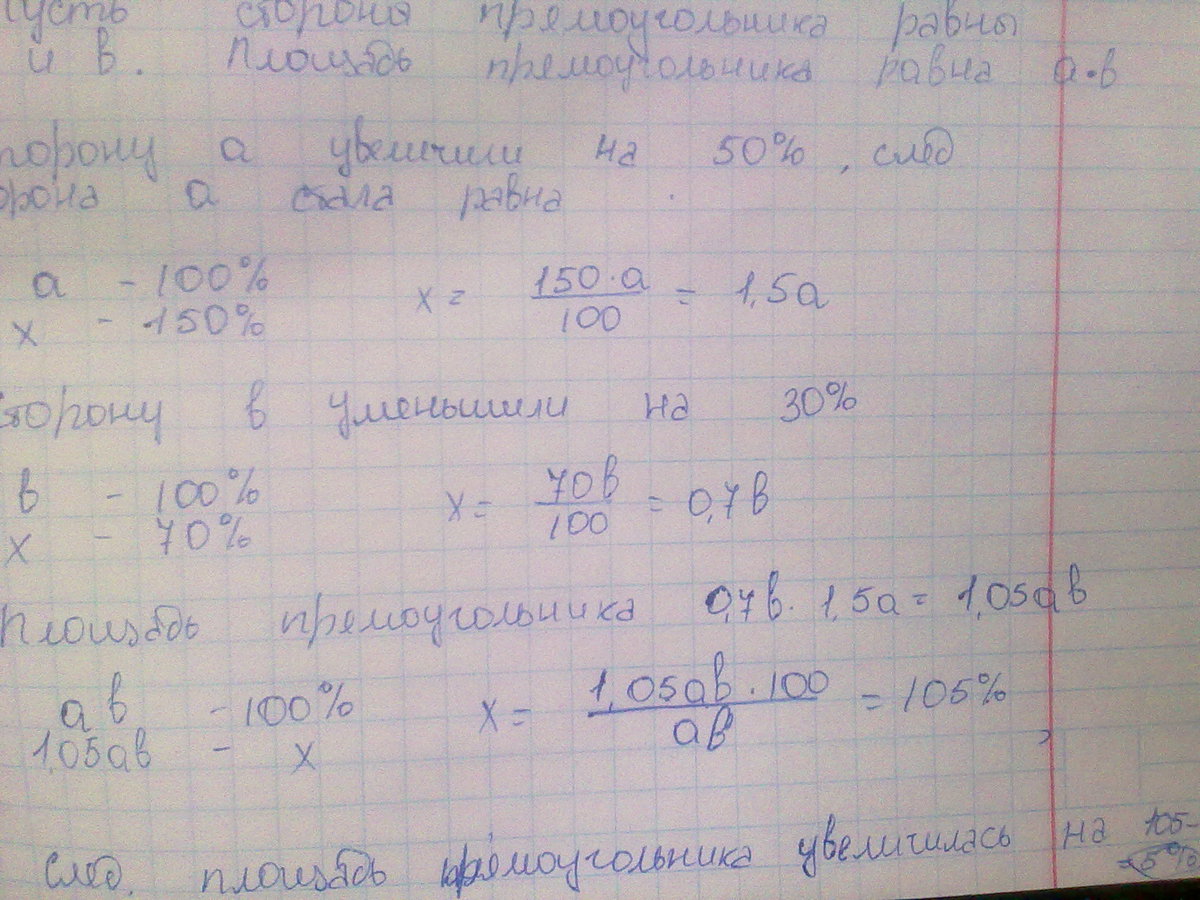 пусть стороны прямоугольника равны
и в. Площадь прямоугольника равна а·в
торону а увеличили на 50%, след
орона а стала равна
а - 100%
х - 150%
х = 150·а / 100 = 1,5а
сторону в уменьшили на 30%
в - 100%
х - 70%
х = 70в / 100 = 0,7в
Площадь прямоугольника 0,7в · 1,5а = 1,05ав
ав - 100%
1,05ав - х
х = 1,05ав · 100 / ав = 105%
След. площадь прямоугольника увеличилась на 105-
5%